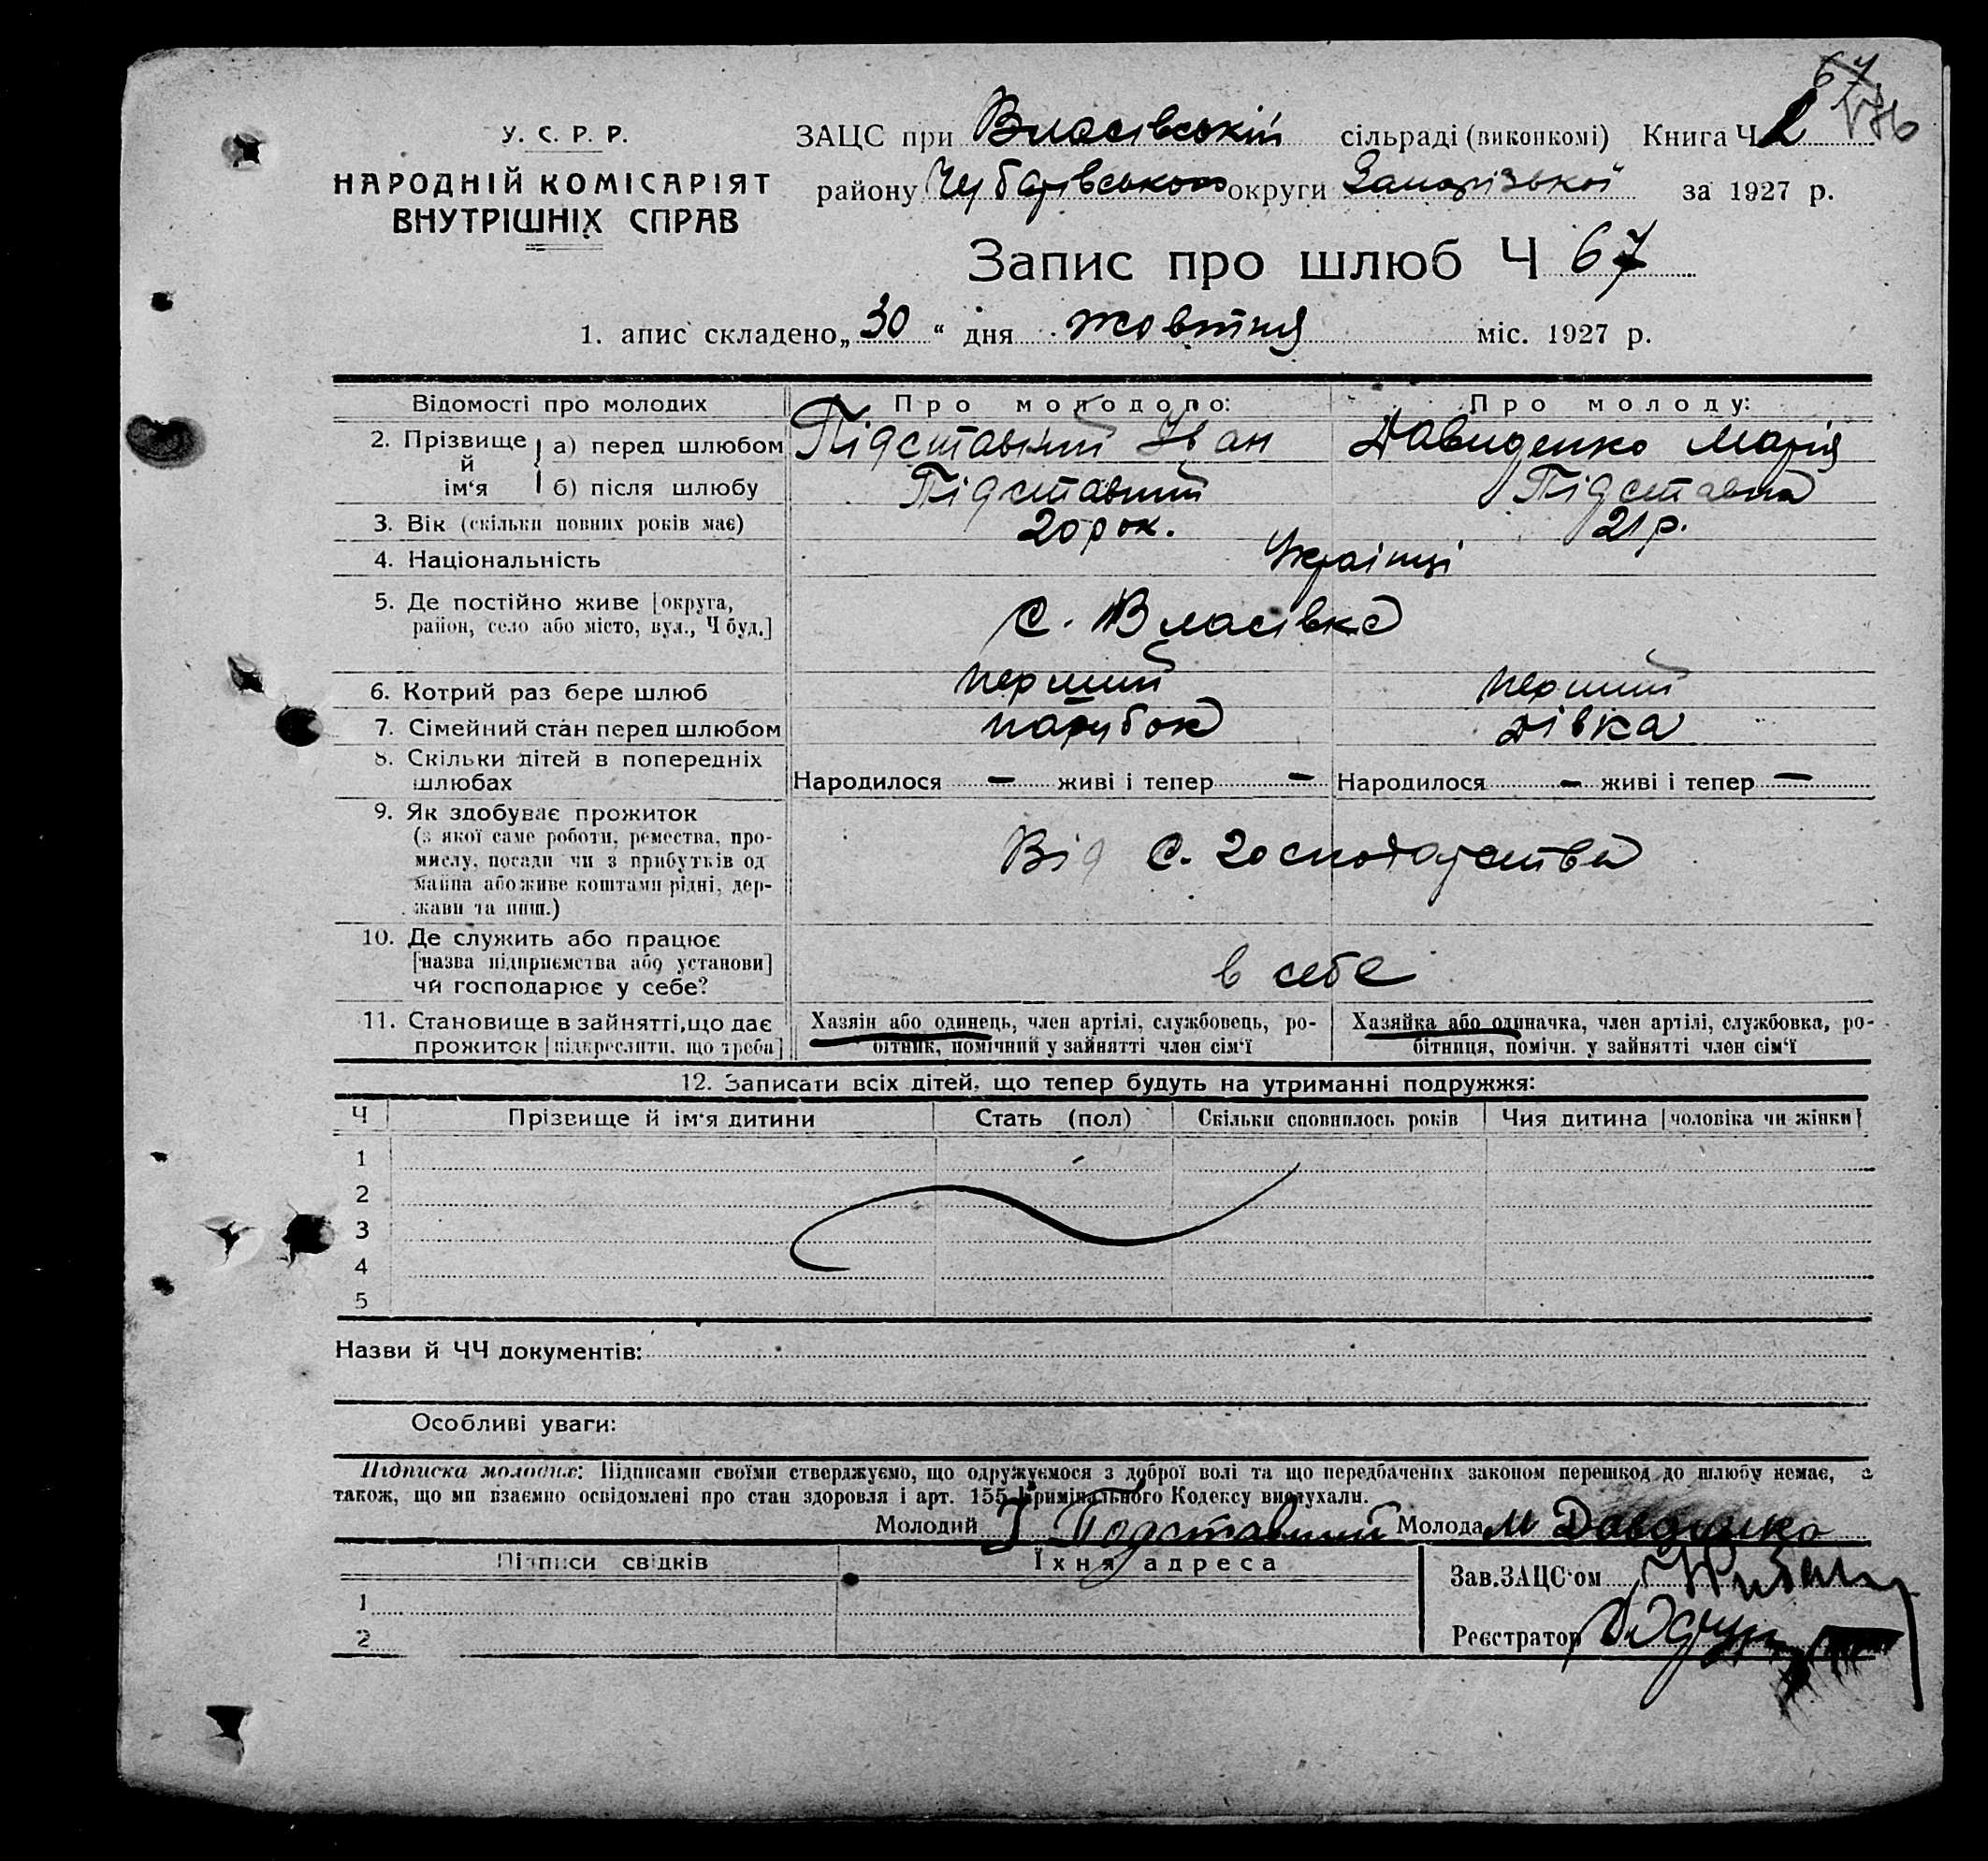 67
У. С. Р. Р.
НАРОДНІЙ КОМІСАРІЯТ
ВНУТРІШНІХ СПРАВ
ЗАЦС при Власівській сільраді (виконкомі) Книга Ч 2
району Чубарівського округи Запорізької за 1927 р.
Запис про шлюб Ч 67
1. апис складено „30“ дня жовтня міс. 1927 р.
Відомості про молодих Про молодого: Про молоду:
2. Прізвище й ім‘я а) перед шлюбом Підставний Іван Давиденко Марія
б) після шлюбу Підставний Підставна
3. Вік (скільки повних років має) 20 рок. 21 р.
4. Національність Українці
5. Де постійно живе [округа,
район, село або місто, вул., Ч буд.] с. Власівка
6. Котрий раз бере шлюб перший перший
7. Сімейний стан перед шлюбом парубок дівка
8. Скільки дітей в попередніх
шлюбах Народилося — живі і тепер — Народилося — живі і тепер —
9. Як здобуває прожиток
(з якої саме роботи, ремества, про-
мислу, посади чи з прибутків од
майна або живе коштами рідні, дер-
жави та инш.) Від с. господарства
10. Де служить або працює
[назва підприємства або установи]
чи господарює у себе? в себе
11. Становище в зайнятті, що дає
прожиток [підкреслити, що треба]
Хазяін або одинець, член артілі, службовець, ро-
бітник, помічний у зайнятті член сім‘ї
Хазяйка або одиначка, член артілі, службовка, ро-
бітниця, помічн. у зайнятті член сім‘ї
12. Записати всіх дітей, що тепер будуть на утриманні подружжя:
Ч Прізвище й ім‘я дитини Стать (пол) Скільки сповнилось років Чия дитина [чоловіка чи жінки]
1
2
3
4
5
Назви й ЧЧ документів:
Особливі уваги:
Підписка молодих: Підписами своїми стверджуємо, що одружуємося з доброї волі та що передбачених законом перешкод до шлюбу немає, а
також, що ми взаємно освідомлені про стан здоровля і арт. 155 Кримінального Кодексу вислухали.
Молодий І Подставний Молода М Давдинко
Підписи свідків Їхня адреса
Зав. ЗАЦС‘ом
1
Реєстратор
2